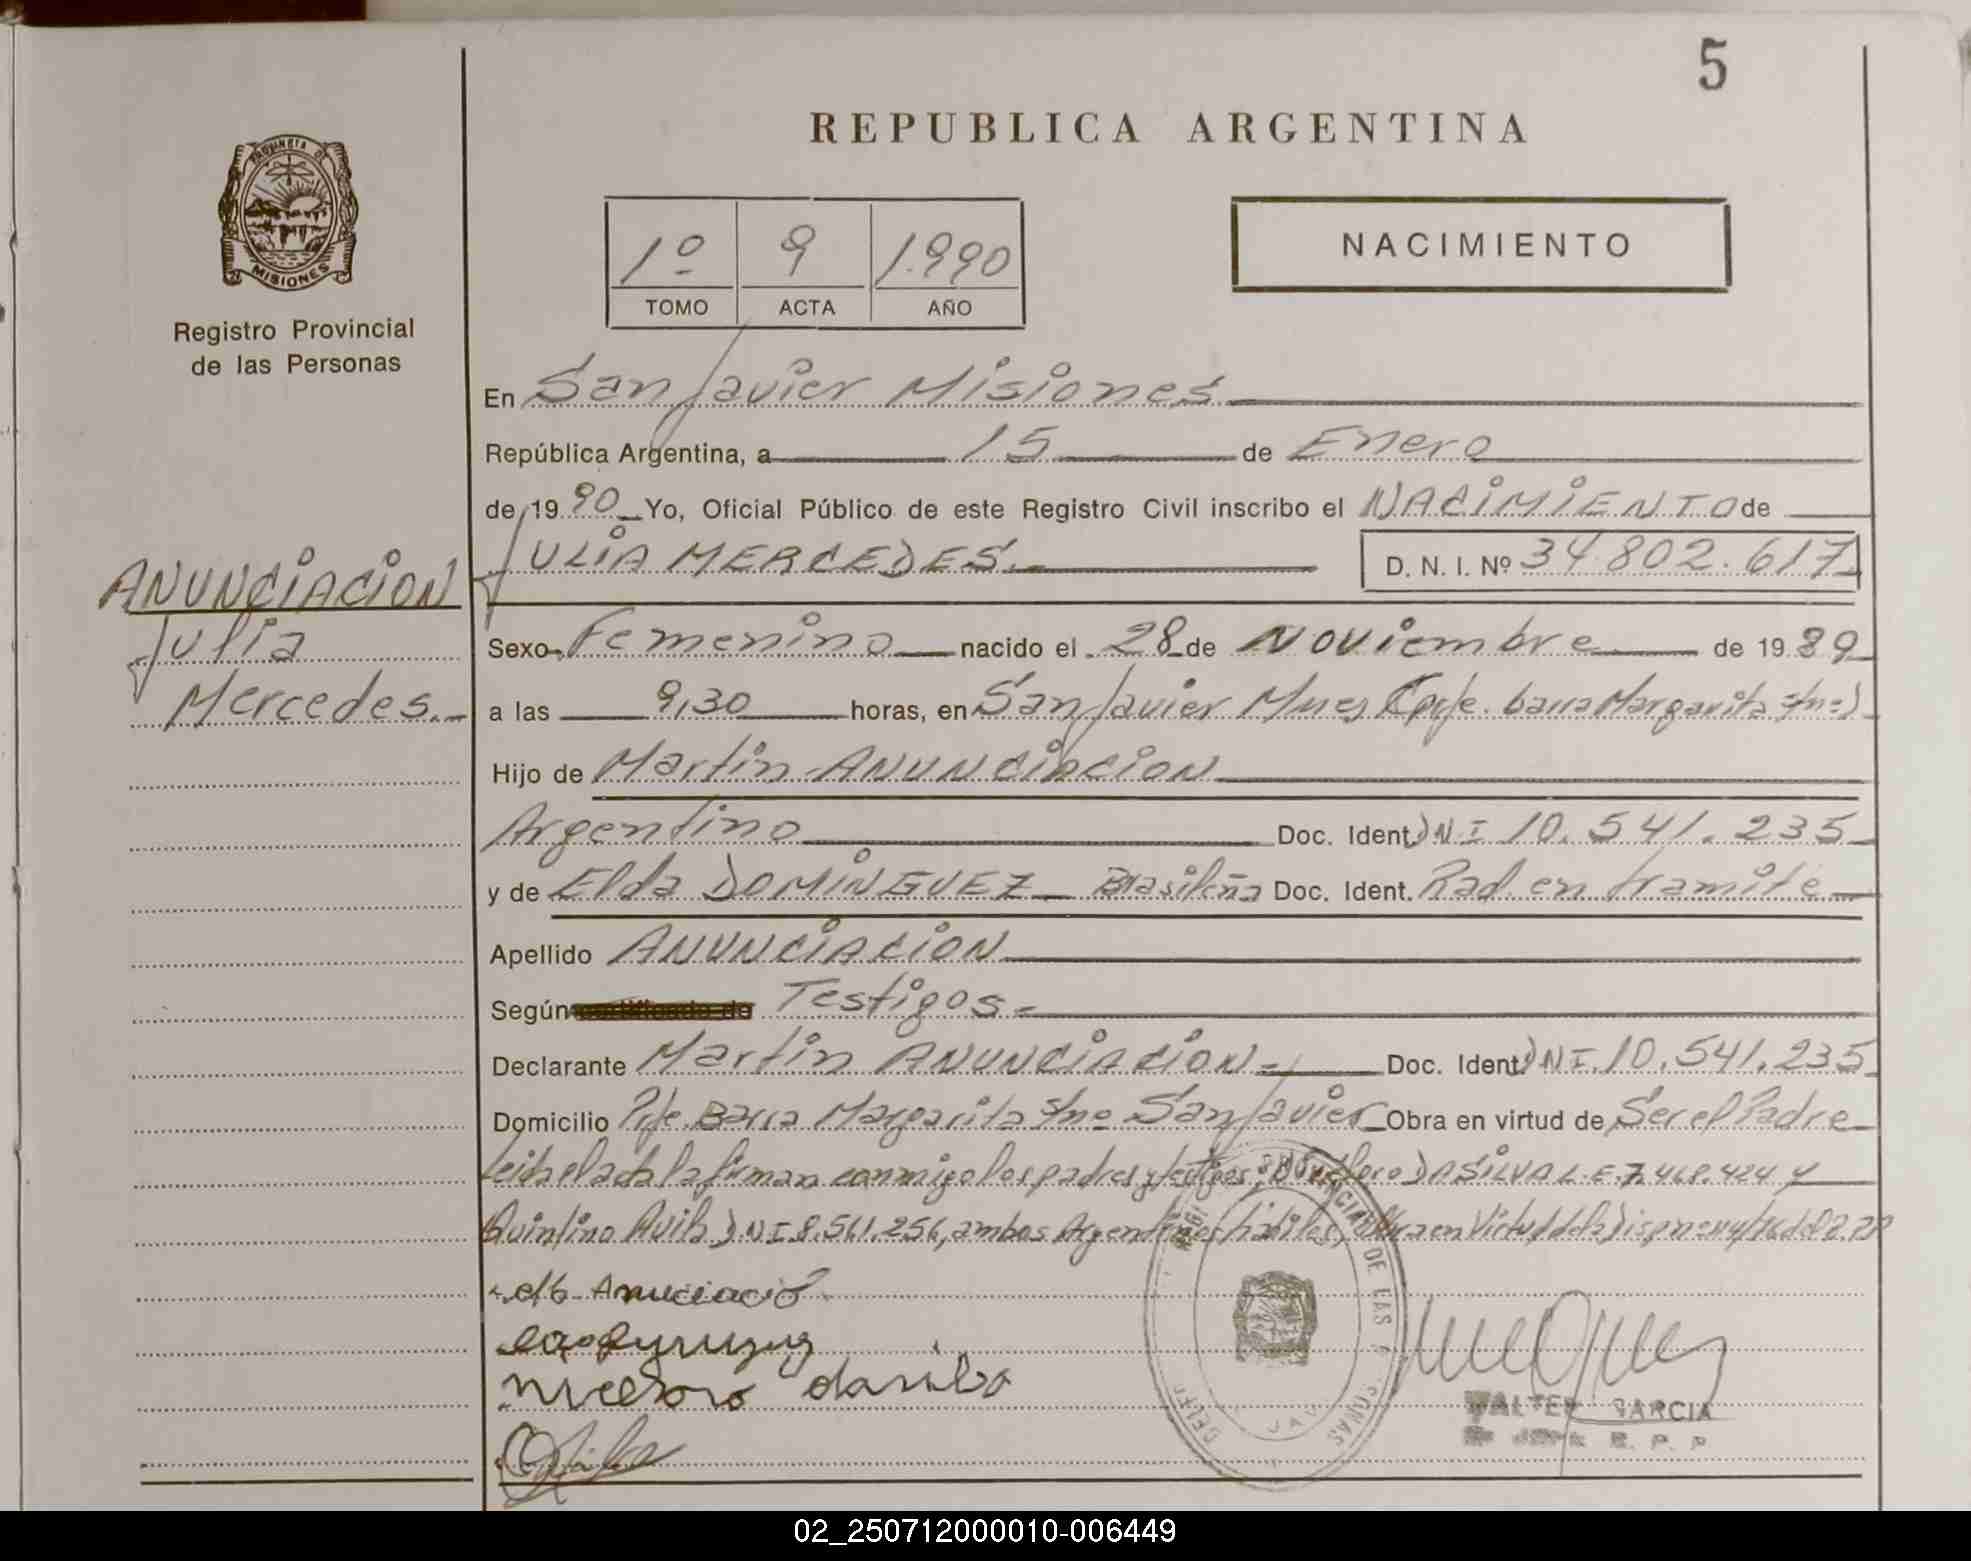 5
REPUBLICA ARGENTINA
PROVINCIA DE
MISIONES
Registro Provincial
de las Personas
1º 9 1.990
TOMO ACTA AÑO
NACIMIENTO
En San Javier Misiones
República Argentina, a 15 de Enero
de 1990 Yo, Oficial Público de este Registro Civil inscribo el NACIMIENTO de
JULIA MERCEDES.- D. N. I. Nº 34.802.617
ANUNCIACION
Julia
Mercedes.-
Sexo Femenino nacido el 28 de Noviembre de 1989
a las 9,30 horas, en San Javier Mnes (Prje. barra Margarita s/nº)
Hijo de Martin ANUNCIACION
Argentino Doc. Ident. DNI 10.541.235
y de Elda DOMINGUEZ Brasileña Doc. Ident. Rad. en tramite
Apellido ANUNCIACION
Según Testigos.-
Declarante Martin ANUNCIACION Doc. Ident. DNI. 10.541.235
Domicilio Prje. Barra Margarita s/nº San Javier Obra en virtud de Ser el Padre
Leida el acta la firman conmigo los padres y testigos, DASILVA L.E. 7.468.424 y
Quintino Avila DNI 8.561.256, ambos Argentinos habiles, Obra en Virtud de la
Anuciació
dasilva
WALTER GARCIA
R. P. P.
02_250712000010-006449